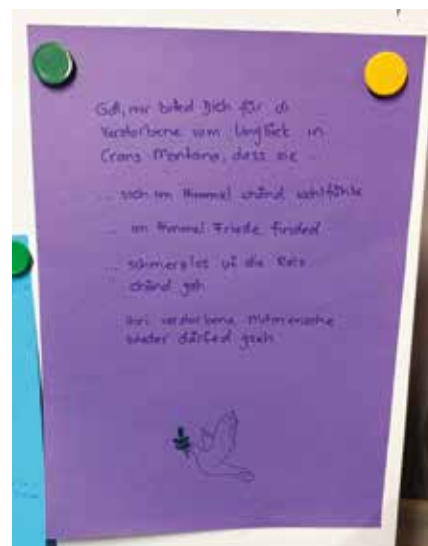 Gott, mir bäted Dich für di
Verstorbene vom Unglück in
Crans Montana, dass sie ...
... sich im Himmel chönd wohlfühle
... im Himmel Friede finded
... schmerzlos uf die Reis
chönd gah
ihri verstorbene Mitmensche
wieder dörfed gseh